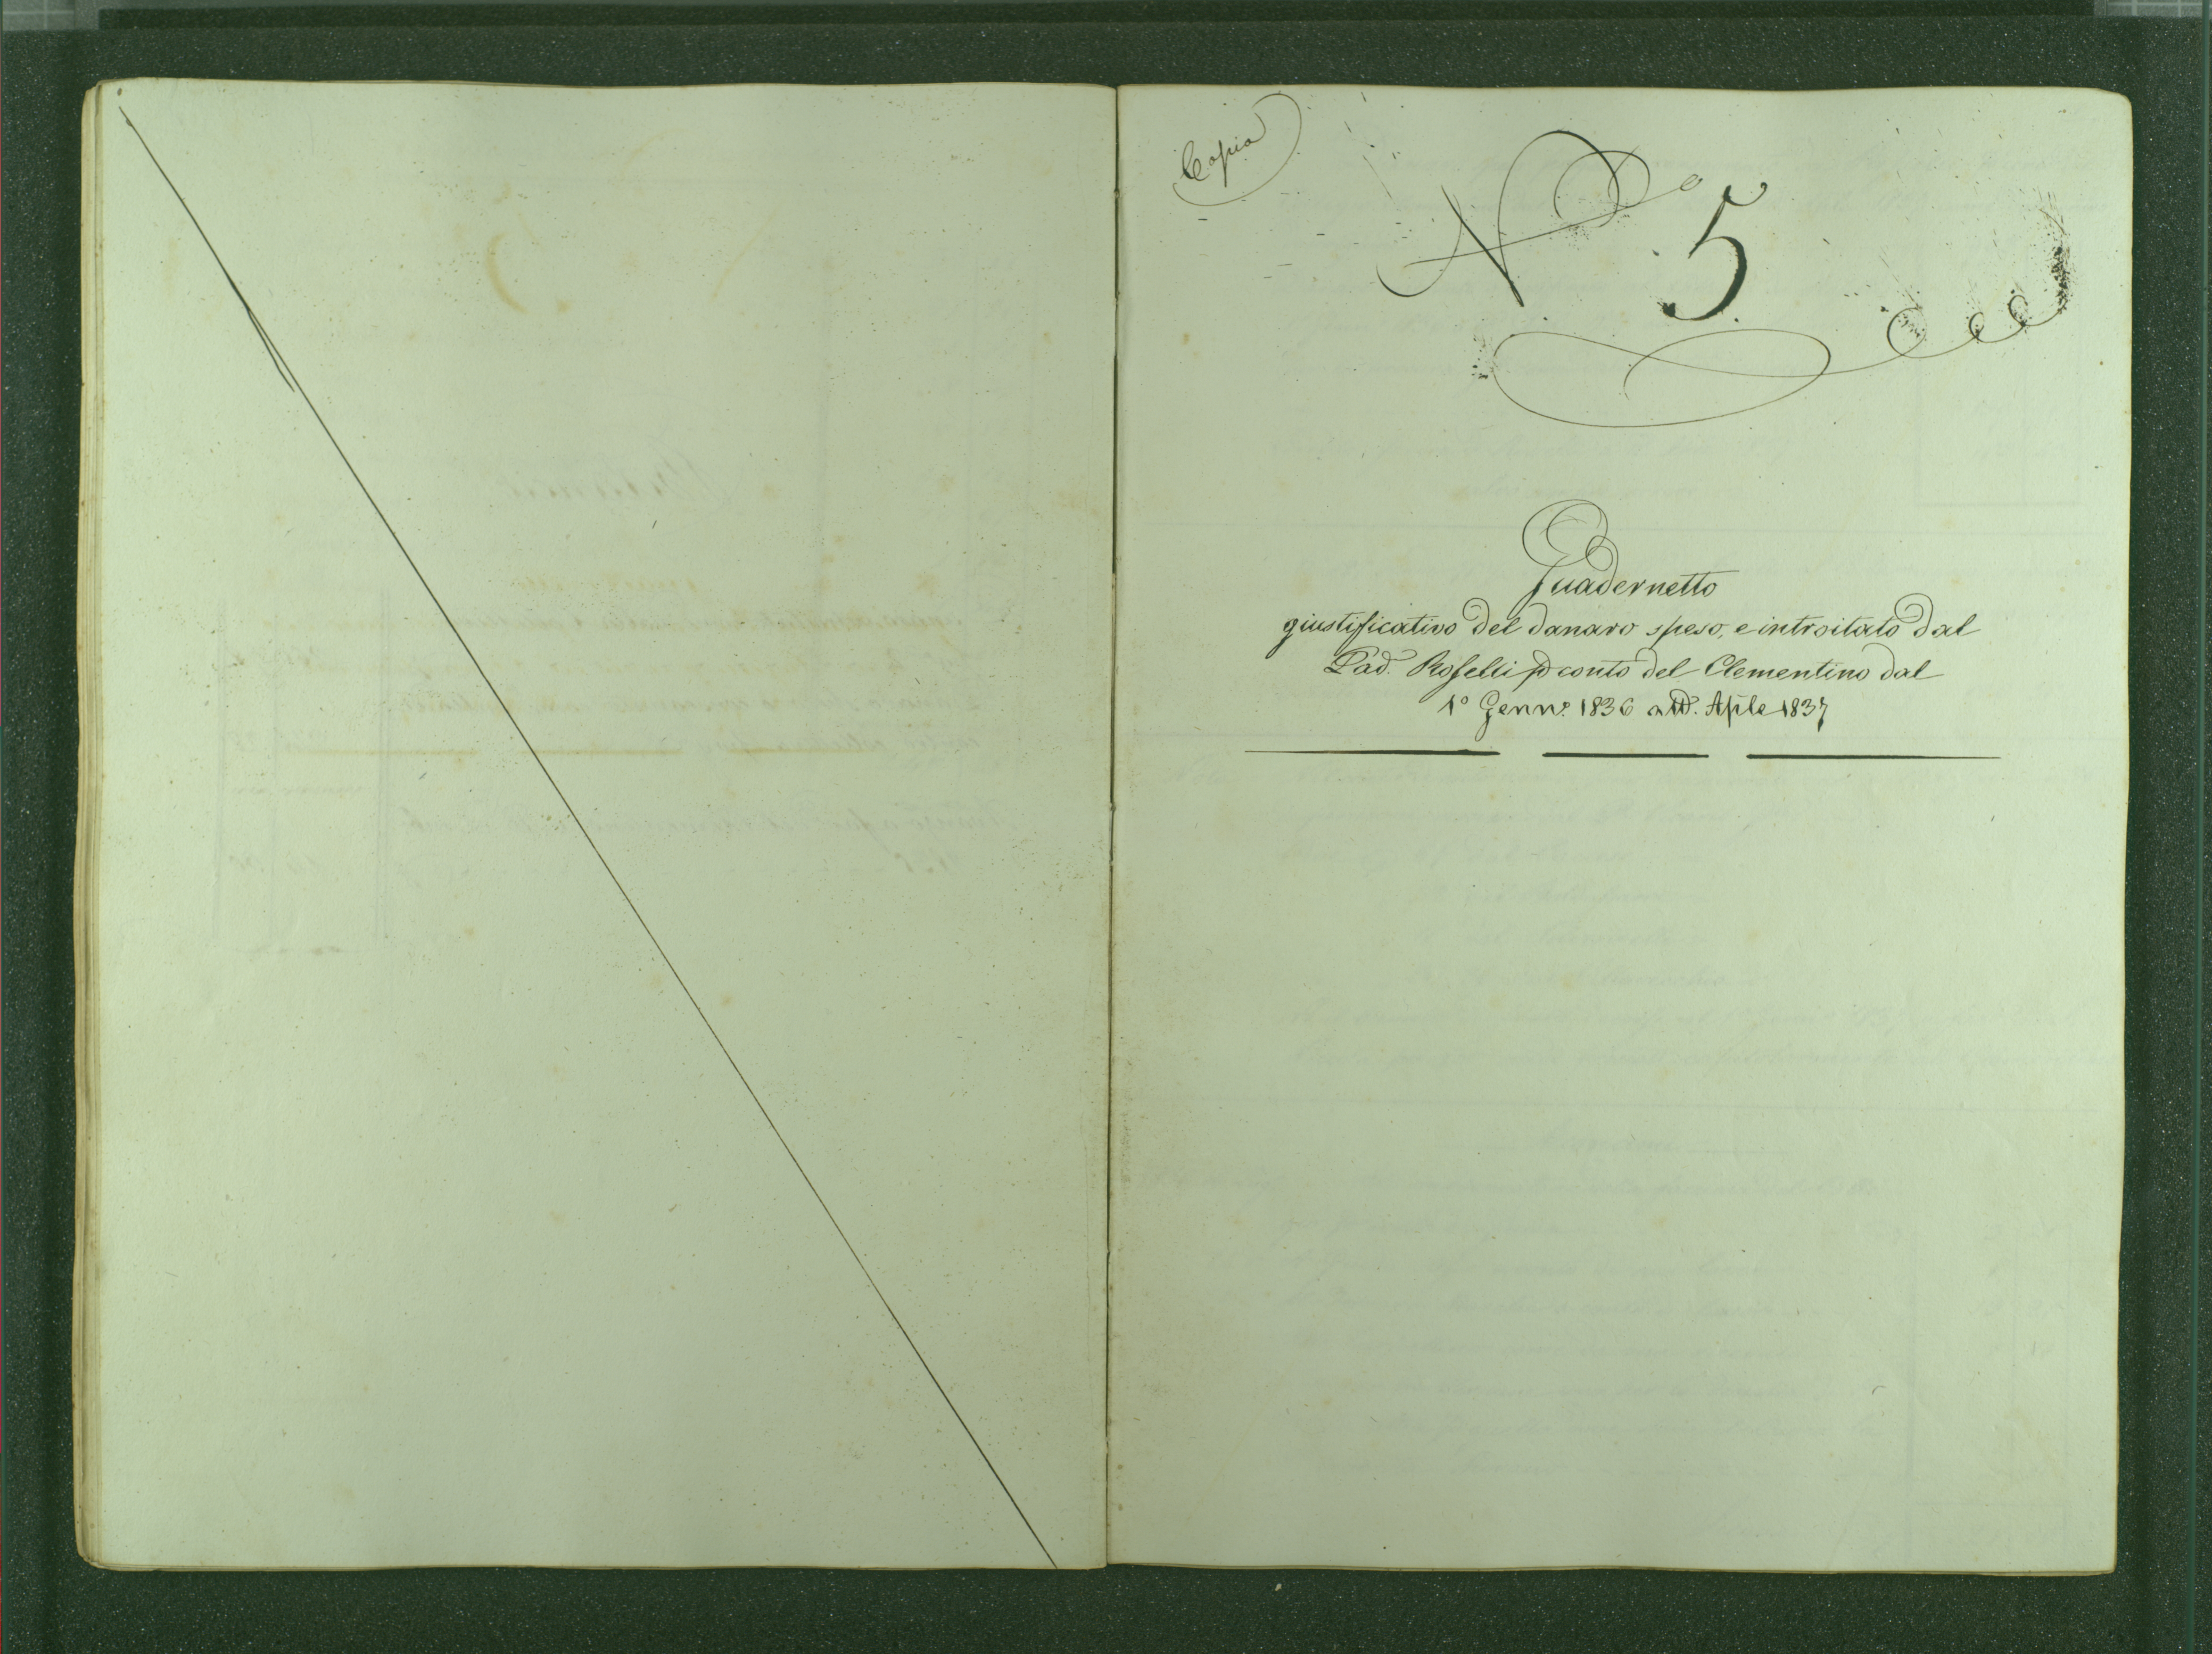 Copia
N.º 5
Quadernetto
giustificativo del danaro speso, e introitato dal
Pad. Rosselli p conto del Clementino dal
1º Genn.º 1836 Aple 1837